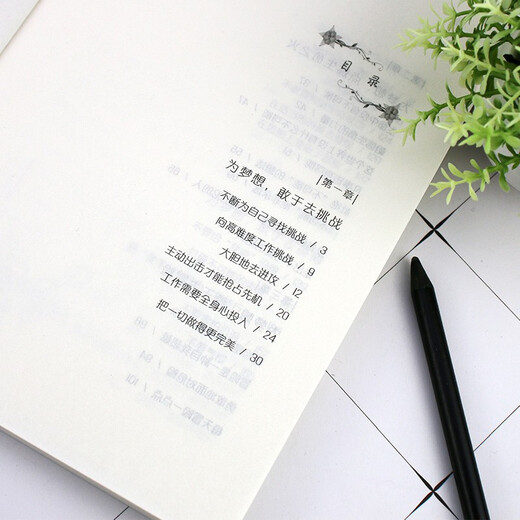 目录
|第一章|
为梦想，敢于去挑战
不断为自己寻找挑战 / 3
向高难度工作挑战 / 9
大胆地去进攻 / 12
主动出击才能抢占先机 / 20
工作需要全身心投入 / 24
把一切做得更完美 / 30